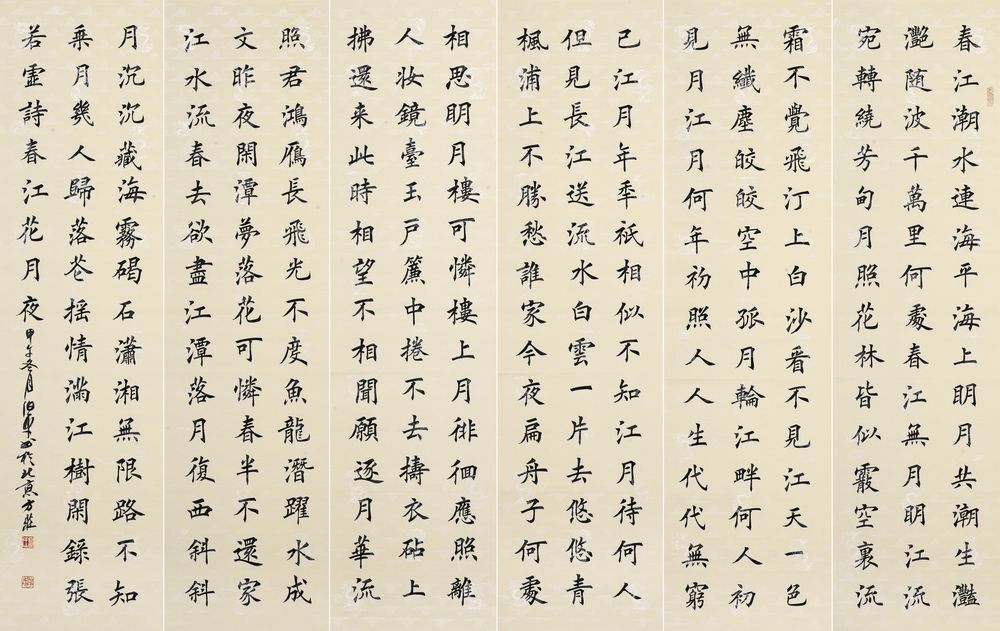 春江潮水連海平海上明月共潮生灩
灧随波千萬里何處春江無月明江流
宛轉繞芳甸月照花林皆似霰空裏流
霜不覺飛汀上白沙看不見江天一色
無纖塵皎皎空中孤月輪江畔何人初
見月江月何年初照人人生代代無窮
已江月年年祇相似不知江月待何人
但見長江送流水白雲一片去悠悠青
楓浦上不勝愁誰家今夜扁舟子何處
相思明月樓可憐樓上月徘徊應照離
人妝鏡臺玉戶簾中捲不去擣衣砧上
拂還来此時相望不相聞願逐月華流
照君鴻鴈長飛光不度魚龍潛躍水成
文昨夜閑潭夢落花可憐春半不還家
江水流春去欲盡江潭落月復西斜斜
月沉沉藏海霧碣石瀟湘無限路不知
乘月幾人歸落花摇情滿江樹閑錄張
若虛詩春江花月夜甲午冬月於北京方莊